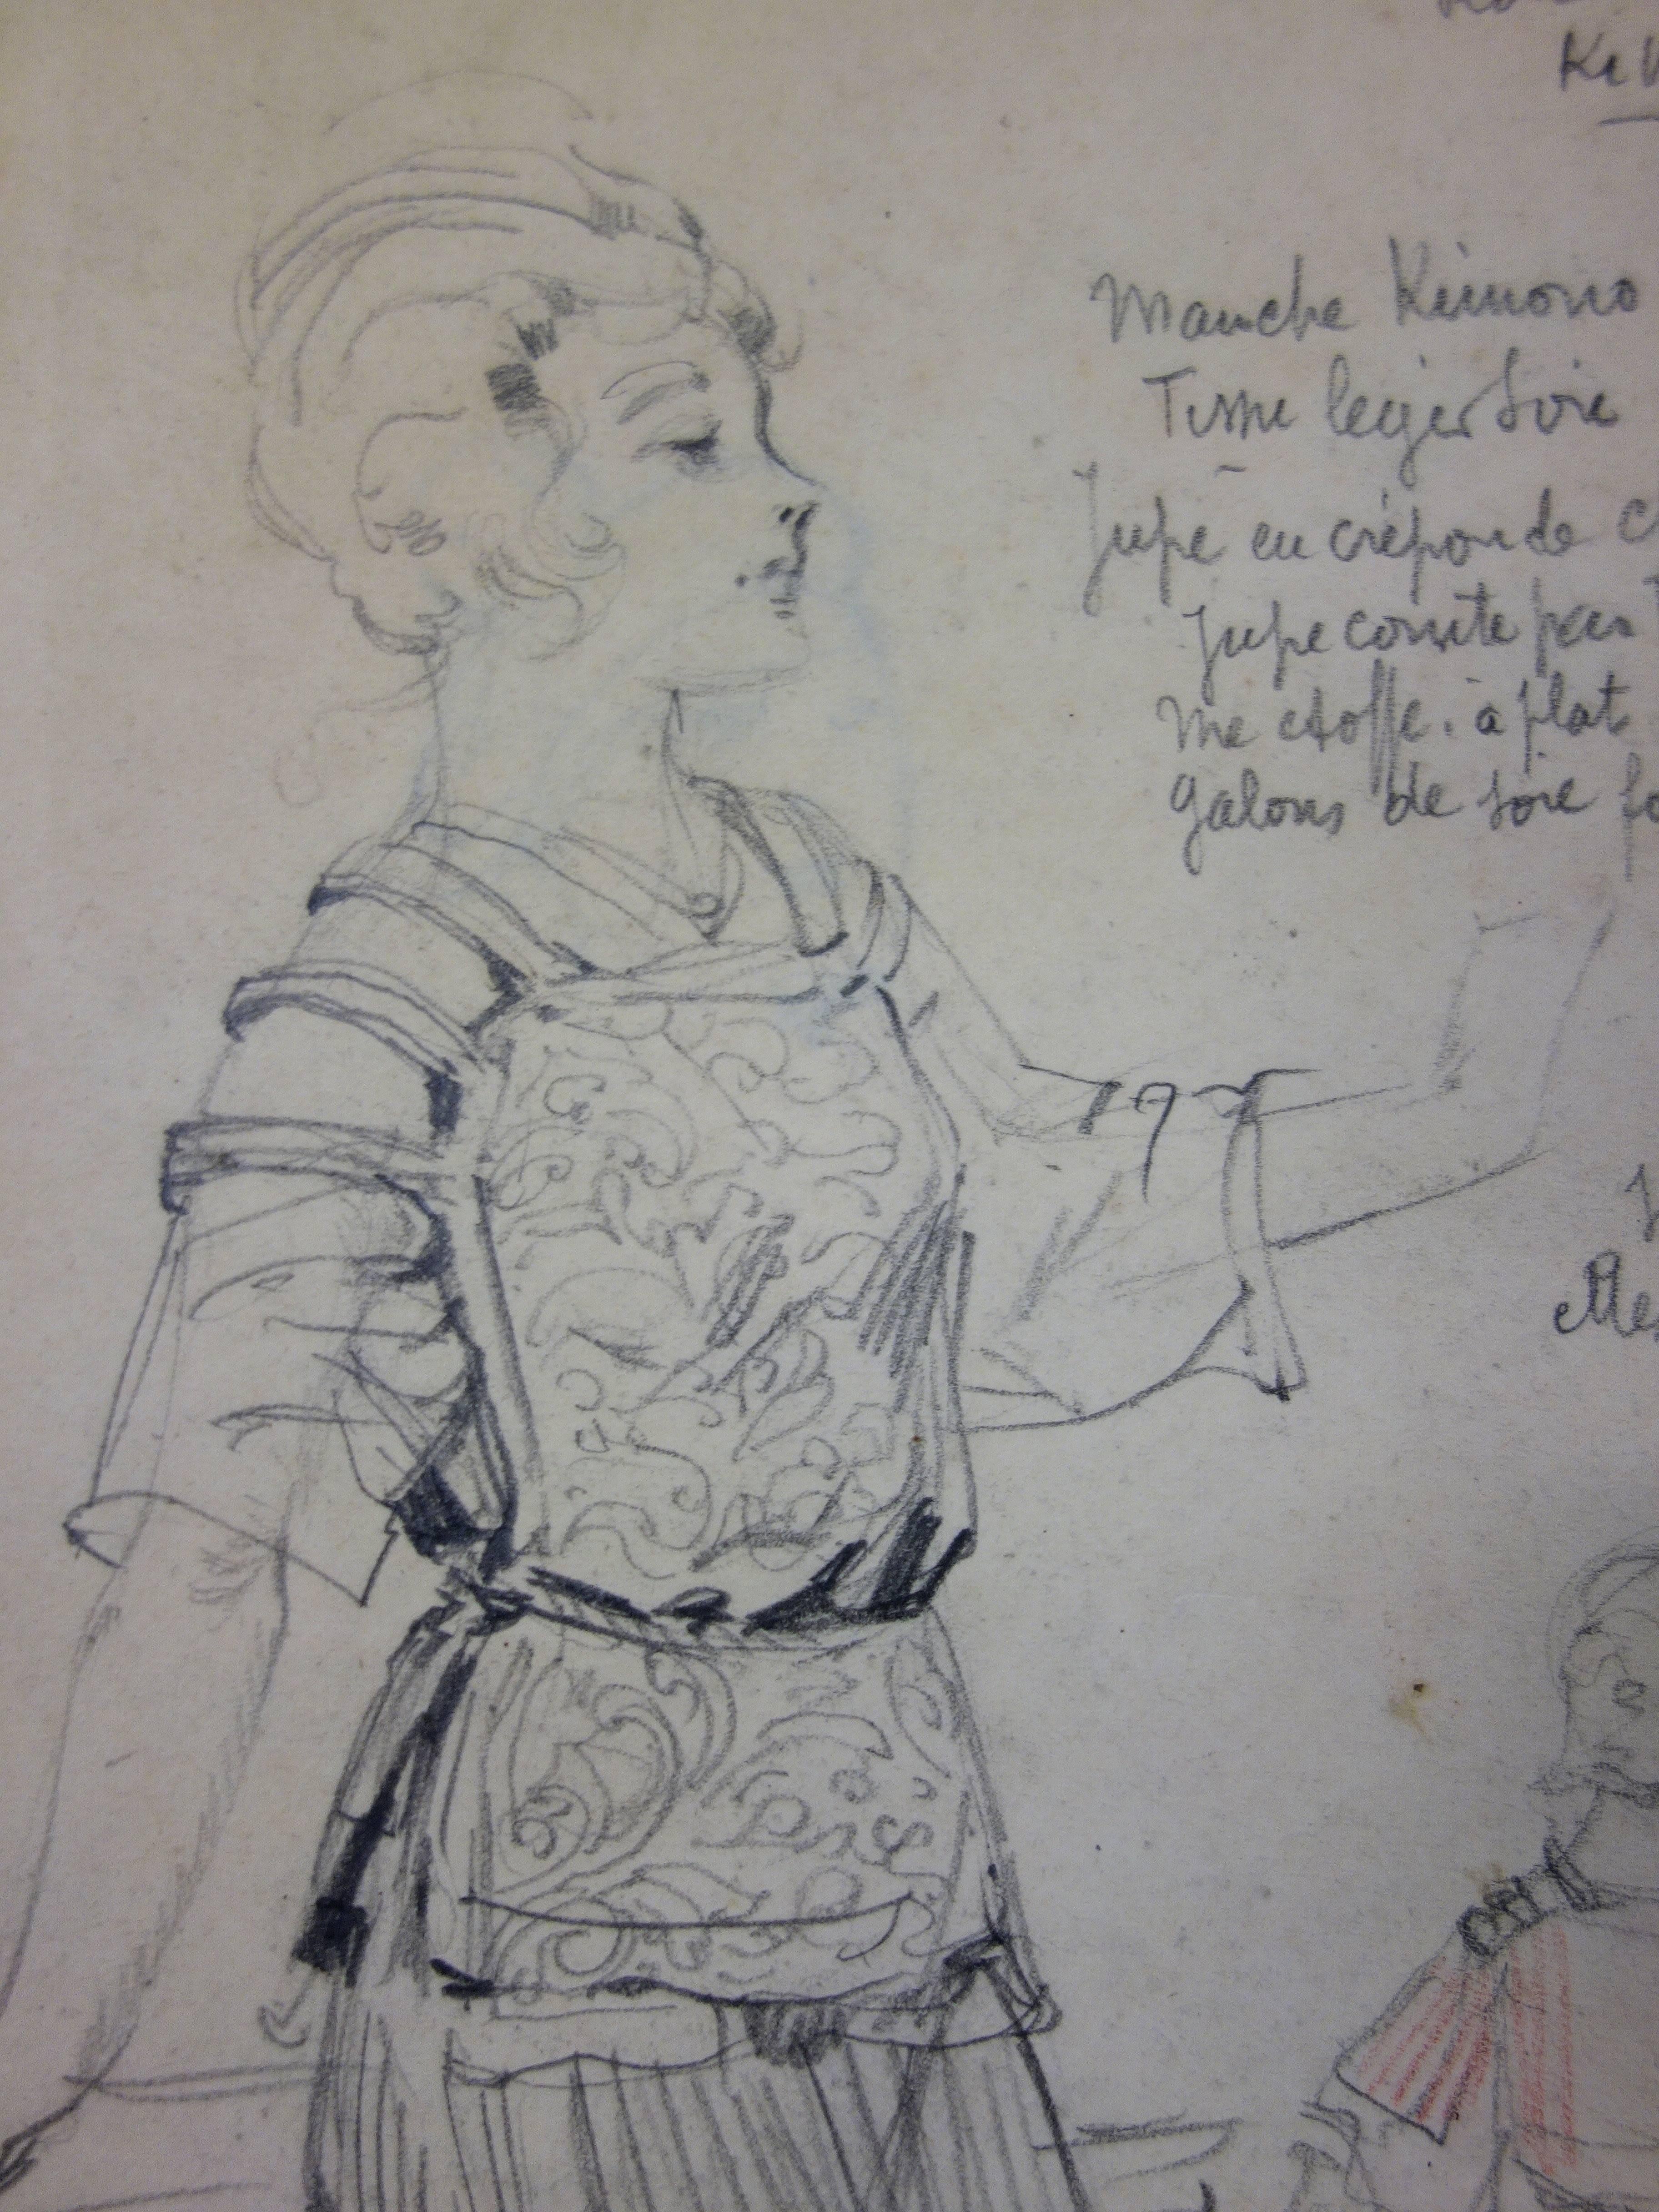 Manche Kimono
Tissu leger Soie
Jupe en crépon de
Jupe courte pas
me etoffe. à plat
Galons de soie